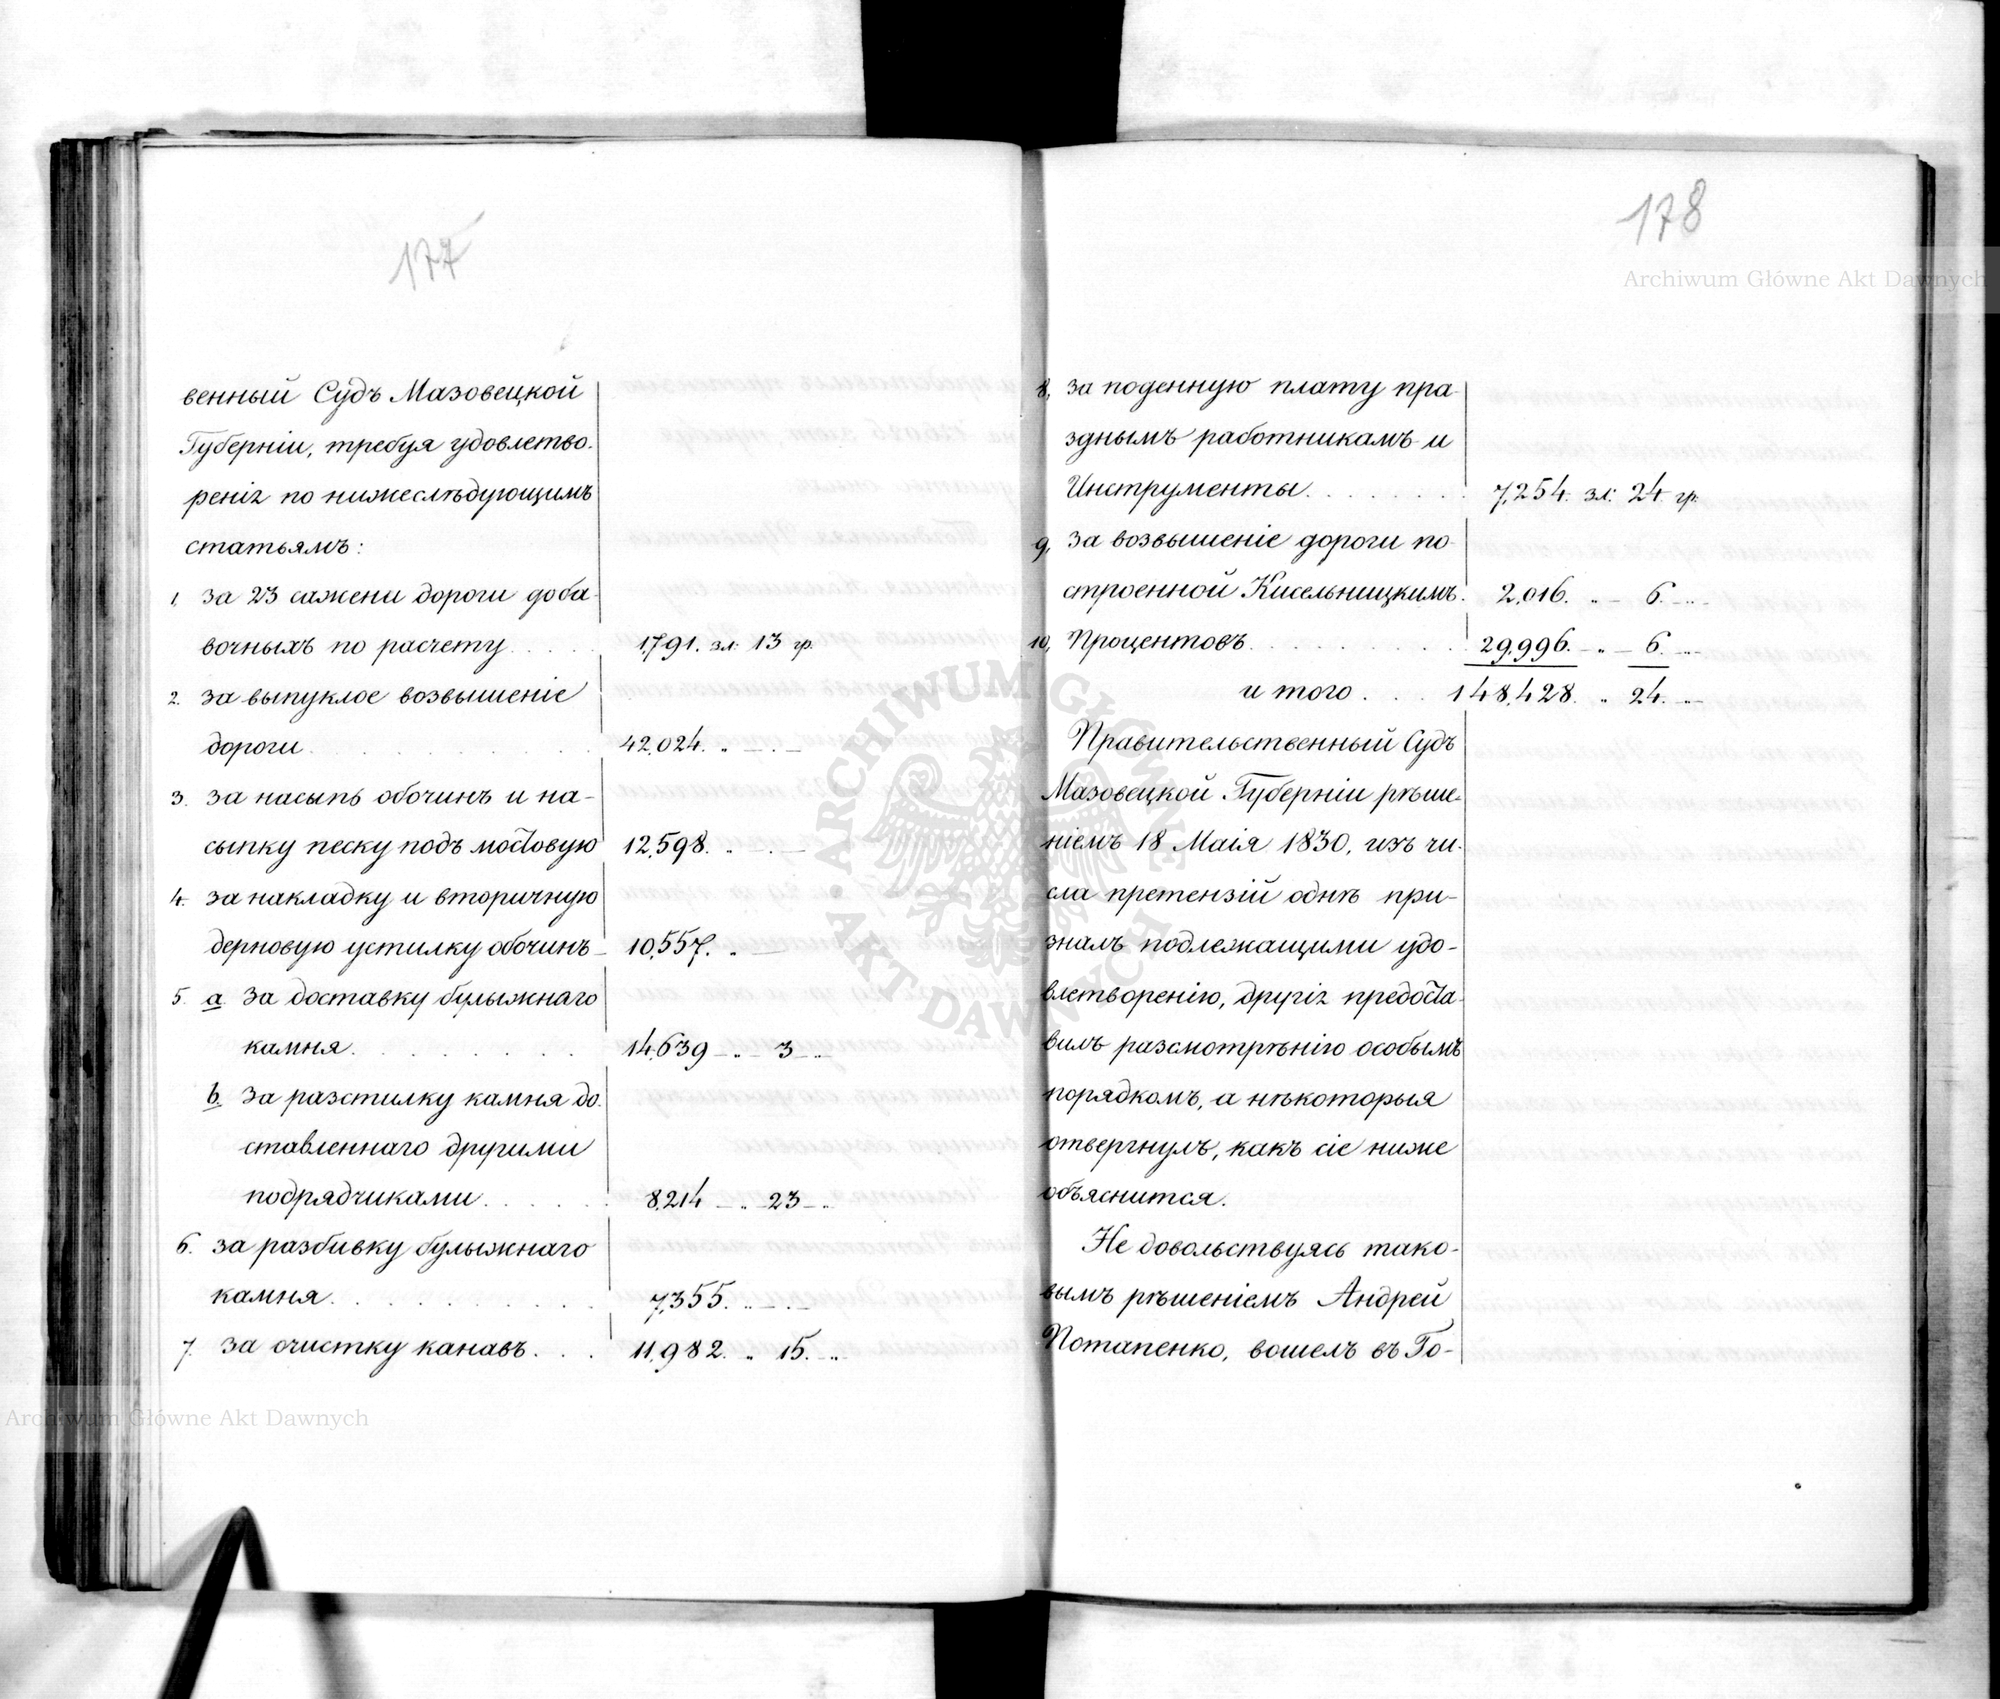 177
венный Судъ Мазовецкой
Губерніи, требуя удовлетво-
ренія по нижеслѣдующимъ
статьямъ:
1. За 23 сажени дороги доба-
вочныхъ по расчету . . . . 1,791. зл: 13 гр.
2. За выпуклое возвышеніе
дороги . . . . . . 42,024. " — " —
3. За насыпь обочинъ и на-
сыпку песку подъ мостовую 12,598. " — " —
4. За накладку и вторичную
дерновую устилку обочинъ — 10,557. " —
5. a За доставку булыжнаго
камня . . . . . . . 14,639 — " — 3 — "
b. За разстилку камня до-
ставленнаго другими
подрядчиками . . . . . 8,214 — " — 23 — "
6. за разбивку булыжнаго
камня . . . . . . . 7,355. " — " —
7. За очистку канавъ . . . 11,982. " 15. — "
178
8. За поденную плату пра-
зднымъ работникамъ и
Инструменты . . . . . . . 7,254. зл: 24. гр.
9. За возвышеніе дороги по-
строенной Кисельницкимъ. 2,016. " — 6. — " —
10. Процентовъ . . . . . . . . 29,996. — " — 6. — " —
и того . . . 148,428. " 24. — " —
Правительственный Судъ
Мазовецкой Губерніи рѣше-
ніемъ 18 Маія 1830, изъ чи-
сла претензій однѣ при-
зналъ подлежащими удо-
влетворенію, другія предоста-
вилъ разсмотрѣнію особымъ
порядкомъ, а нѣкоторыя
отвергнулъ, какъ сіе ниже
объяснится.
Не довольствуясь тако-
вымъ рѣшеніемъ Андрей
Потапенко, вошелъ въ Го-
Archiwum Główne Akt Dawnych
ARCHIWUM GŁÓWNE • AKT DAWNYCH •
Archiwum Główne Akt Dawnych